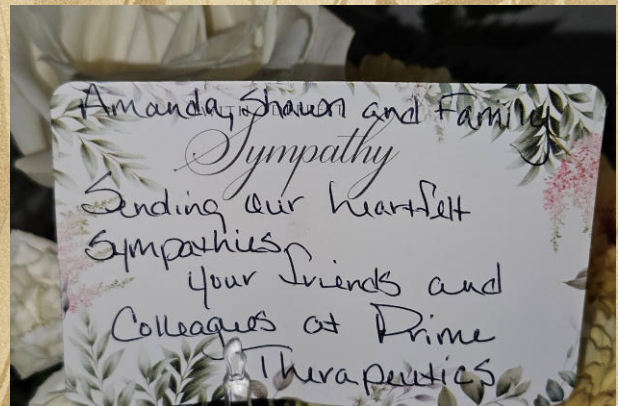 Amanda, Shawn and Family
Sympathy
Sending our heartfelt
Sympathies,
your friends and
Colleagues at Prime
Therapeutics